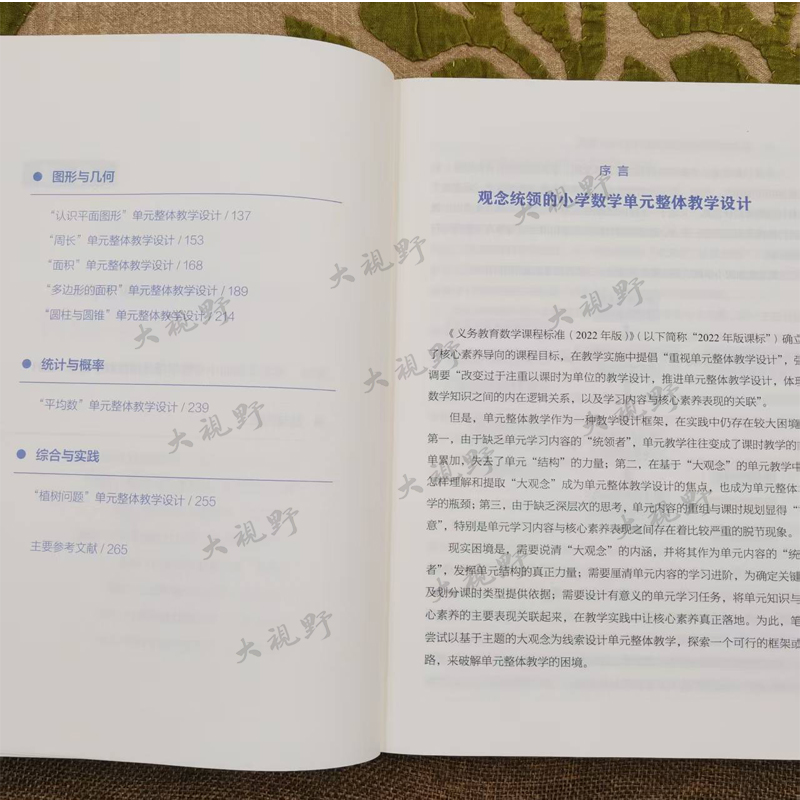 图形与几何
“认识平面图形”单元整体教学设计 / 137
“周长”单元整体教学设计 / 153
“面积”单元整体教学设计 / 168
“多边形的面积”单元整体教学设计 / 189
“圆柱与圆锥”单元整体教学设计 / 214
统计与概率
“平均数”单元整体教学设计 / 239
综合与实践
“植树问题”单元整体教学设计 / 255
主要参考文献 / 265
序言
观念统领的小学数学单元整体教学设计
《义务教育数学课程标准（2022年版）》（以下简称“2022年版课标”）确立
了核心素养导向的课程目标，在教学实施中提倡“重视单元整体教学设计”，强
调要“改变过于注重以课时为单位的教学设计，推进单元整体教学设计，体现
数学知识之间的内在逻辑关系，以及学习内容与核心素养表现的关联”。
但是，单元整体教学作为一种教学设计框架，在实践中仍存在较大困境
第一，由于缺乏单元学习内容的“统领者”，单元教学往往变成了课时教学的
单累加，失去了单元“结构”的力量；第二，在基于“大观念”的单元教学中
怎样理解和提取“大观念”成为单元整体教学设计的焦点，也成为单元整体
学的瓶颈；第三，由于缺乏深层次的思考，单元内容的重组与课时规划显得“
意”，特别是单元学习内容与核心素养表现之间存在着比较严重的脱节现象。
现实困境是，需要说清“大观念”的内涵，并将其作为单元内容的“统
者”，发挥单元结构的真正力量；需要厘清单元内容的学习进阶，为确定关键
及划分课时类型提供依据；需要设计有意义的单元学习任务，将单元知识与
心素养的主要表现关联起来，在教学实践中让核心素养真正落地。为此，笔
尝试以基于主题的大观念为线索设计单元整体教学，探索一个可行的框架或
路，来破解单元整体教学的困境。
大视野
大视野
大视野
大视野
大视野
大视野
大视野
大视野
大视野
大视野
大视野